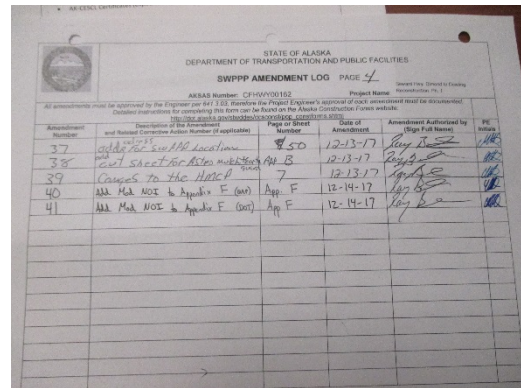 STATE OF ALASKA
DEPARTMENT OF TRANSPORTATION AND PUBLIC FACILITIES
SWPPP AMENDMENT LOG PAGE 4
AKSAS Number: CFHWY00162 Project Name
Reconstruction, Ph. I
All amendments must be approved by the Engineer per 641 3.03, therefore the Project Engineer's approval of each amendment must be documented.
Detailed instructions for completing this form can be found on the Alaska Construction Forms website.
Amendment Number
Description of the Amendment and Related Corrective Action Number (if applicable)
Page or Sheet Number
Date of Amendment
Amendment Authorized by (Sign Full Name)
PE Initials
37 for SWPPP Location 50 12-13-17
38 cut sheet for App B 12-13-17
39 to the HMCP 7 12-13-17
40 Add Mod NOI to Appendix F App F 12-14-17
41 Add Mod NOI to Appendix F (DOT) App F 12-14-17